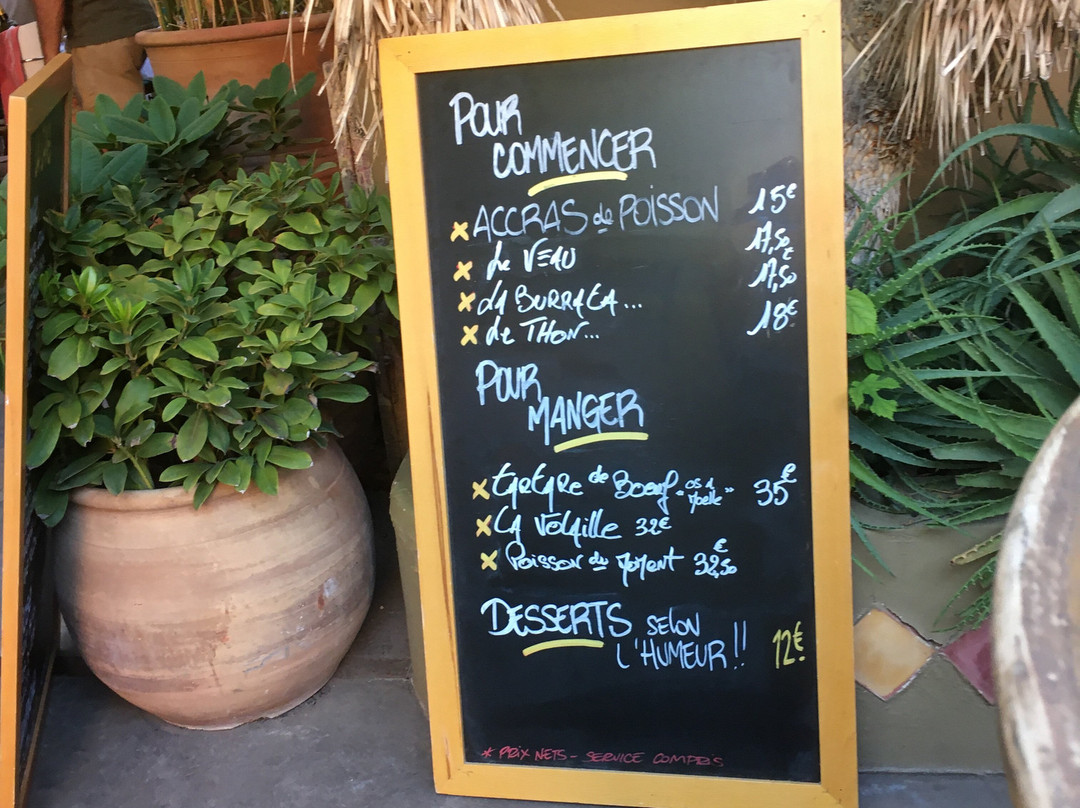 POUR
COMMENCER
x ACCRAS de POISSON 15€
x Le VEAU 17,50€
x LA BURRATA... 17,50
x Le THON... 18€
POUR
MANGER
x TARTARE de Boeuf "os à Moelle" 35€
x LA VOLAILLE 32€
x Poisson du Moment 32,50€
DESSERTS SELON
L'HUMEUR!! 12€
* PRIX NETS - SERVICE COMPRIS